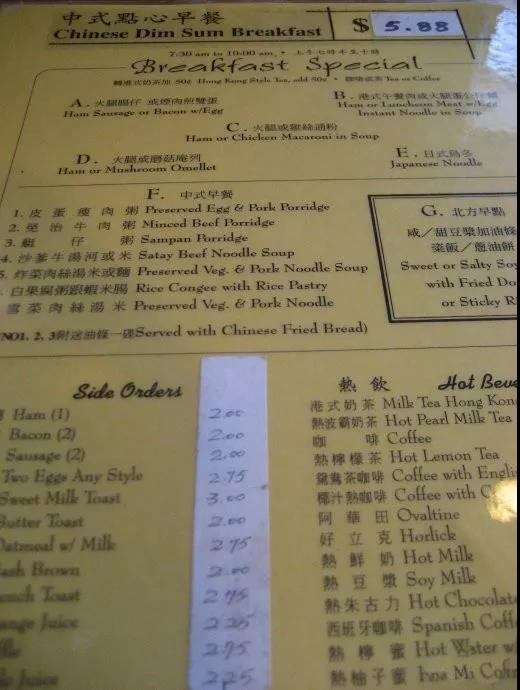 中式點心早餐
Chinese Dim Sum Breakfast $ 5.88
7:30 am to 10:00 am. • 上午七時半至十時
Breakfast Special
轉港式奶茶加 50¢ Hong Kong Style Tea, add 50¢ • 咖啡或茶 Tea or Coffee
A. 火腿腸仔 或煙肉煎雙蛋
Ham Sausage or Bacon w/Egg
B. 港式午餐肉或火腿蛋公仔麵
Ham or Luncheon Meat w/Egg
Instant Noodle in Soup
C. 火腿或雞絲通粉
Ham or Chicken Macaroni in Soup
D. 火腿或蘑菇庵列
Ham or Mushroom Omellet
E. 日式烏冬
Japanese Noodle
F. 中式早餐
1. 皮蛋瘦肉粥 Preserved Egg & Pork Porridge
2. 免治牛肉粥 Minced Beef Porridge
3. 艇仔粥 Sampan Porridge
4. 沙爹牛湯河或米 Satay Beef Noodle Soup
5. 炸菜肉絲湯米或麵 Preserved Veg. & Pork Noodle Soup
白果腐粥跟蝦米腸 Rice Congee with Rice Pastry
雪菜肉絲湯米 Preserved Veg. & Pork Noodle
(NO1. 2. 3附送油條一碟Served with Chinese Fried Bread)
G. 北方早點
咸／甜豆漿加油條
粢飯／蔥油餅
Sweet or Salty Soy
with Fried Do
or Sticky Ri
Side Orders
Ham (1) 2.00
Bacon (2) 2.00
Sausage (2) 2.00
Two Eggs Any Style 2.75
Sweet Milk Toast 3.00
Butter Toast 2.00
Oatmeal w/ Milk 2.75
ash Brown 2.00
ench Toast 2.75
ange Juice 2.25
ffle 2.75
le Juice 2.25
熱飲 Hot Beve
港式奶茶 Milk Tea Hong Kon
熱波霸奶茶 Hot Pearl Milk Tea
咖啡 Coffee
熱檸檬茶 Hot Lemon Tea
鴛鴦茶咖啡 Coffee with Engli
椰汁熱咖啡 Coffee with C
阿華田 Ovaltine
好立克 Horlick
熱鮮奶 Hot Milk
熱豆漿 Soy Milk
熱朱古力 Hot Chocolate
西班牙咖啡 Spanish Coff
熱檸蜜 Hot Water w
熱柚子蜜